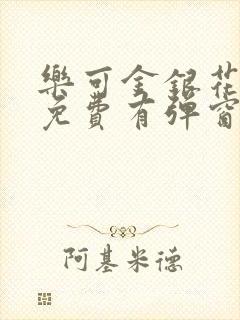 樂可金銀花
免費有彈窗
阿基米德